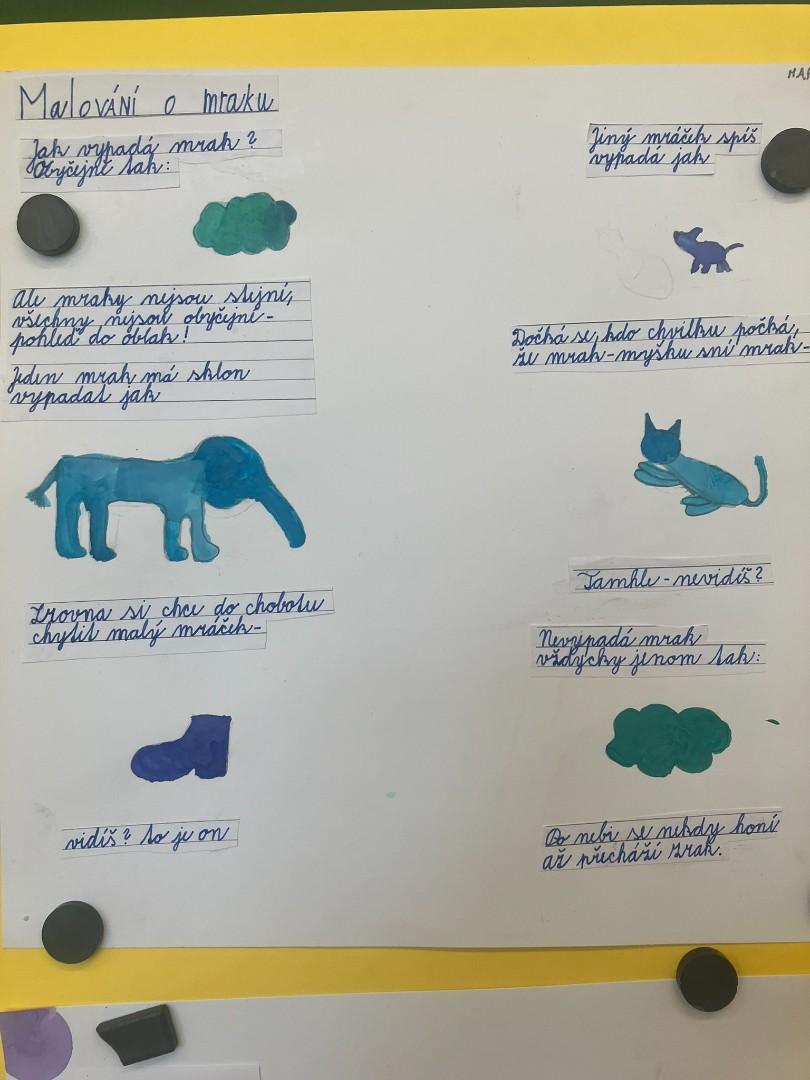 Malování o mraku
Jak vypadá mrak?
Obyčejně tak:
Ale mraky nejsou stejní,
všechny nejsou obyčejní-
pohleď do oblak!
Jeden mrak má sklon
vypadat jak
Zrovna si chce do chobotu
chytit malý mráček-
vidíš? to je on
MAR
Jiný mráček spíš
vypadá jak
Dočká se, kdo chvilku počká,
že mrak-myšku sní mrak-
Tamhle-nevidíš?
Nevypadá mrak
vždycky jenom tak:
Po nebi se někdy honí
až přechází zrak.